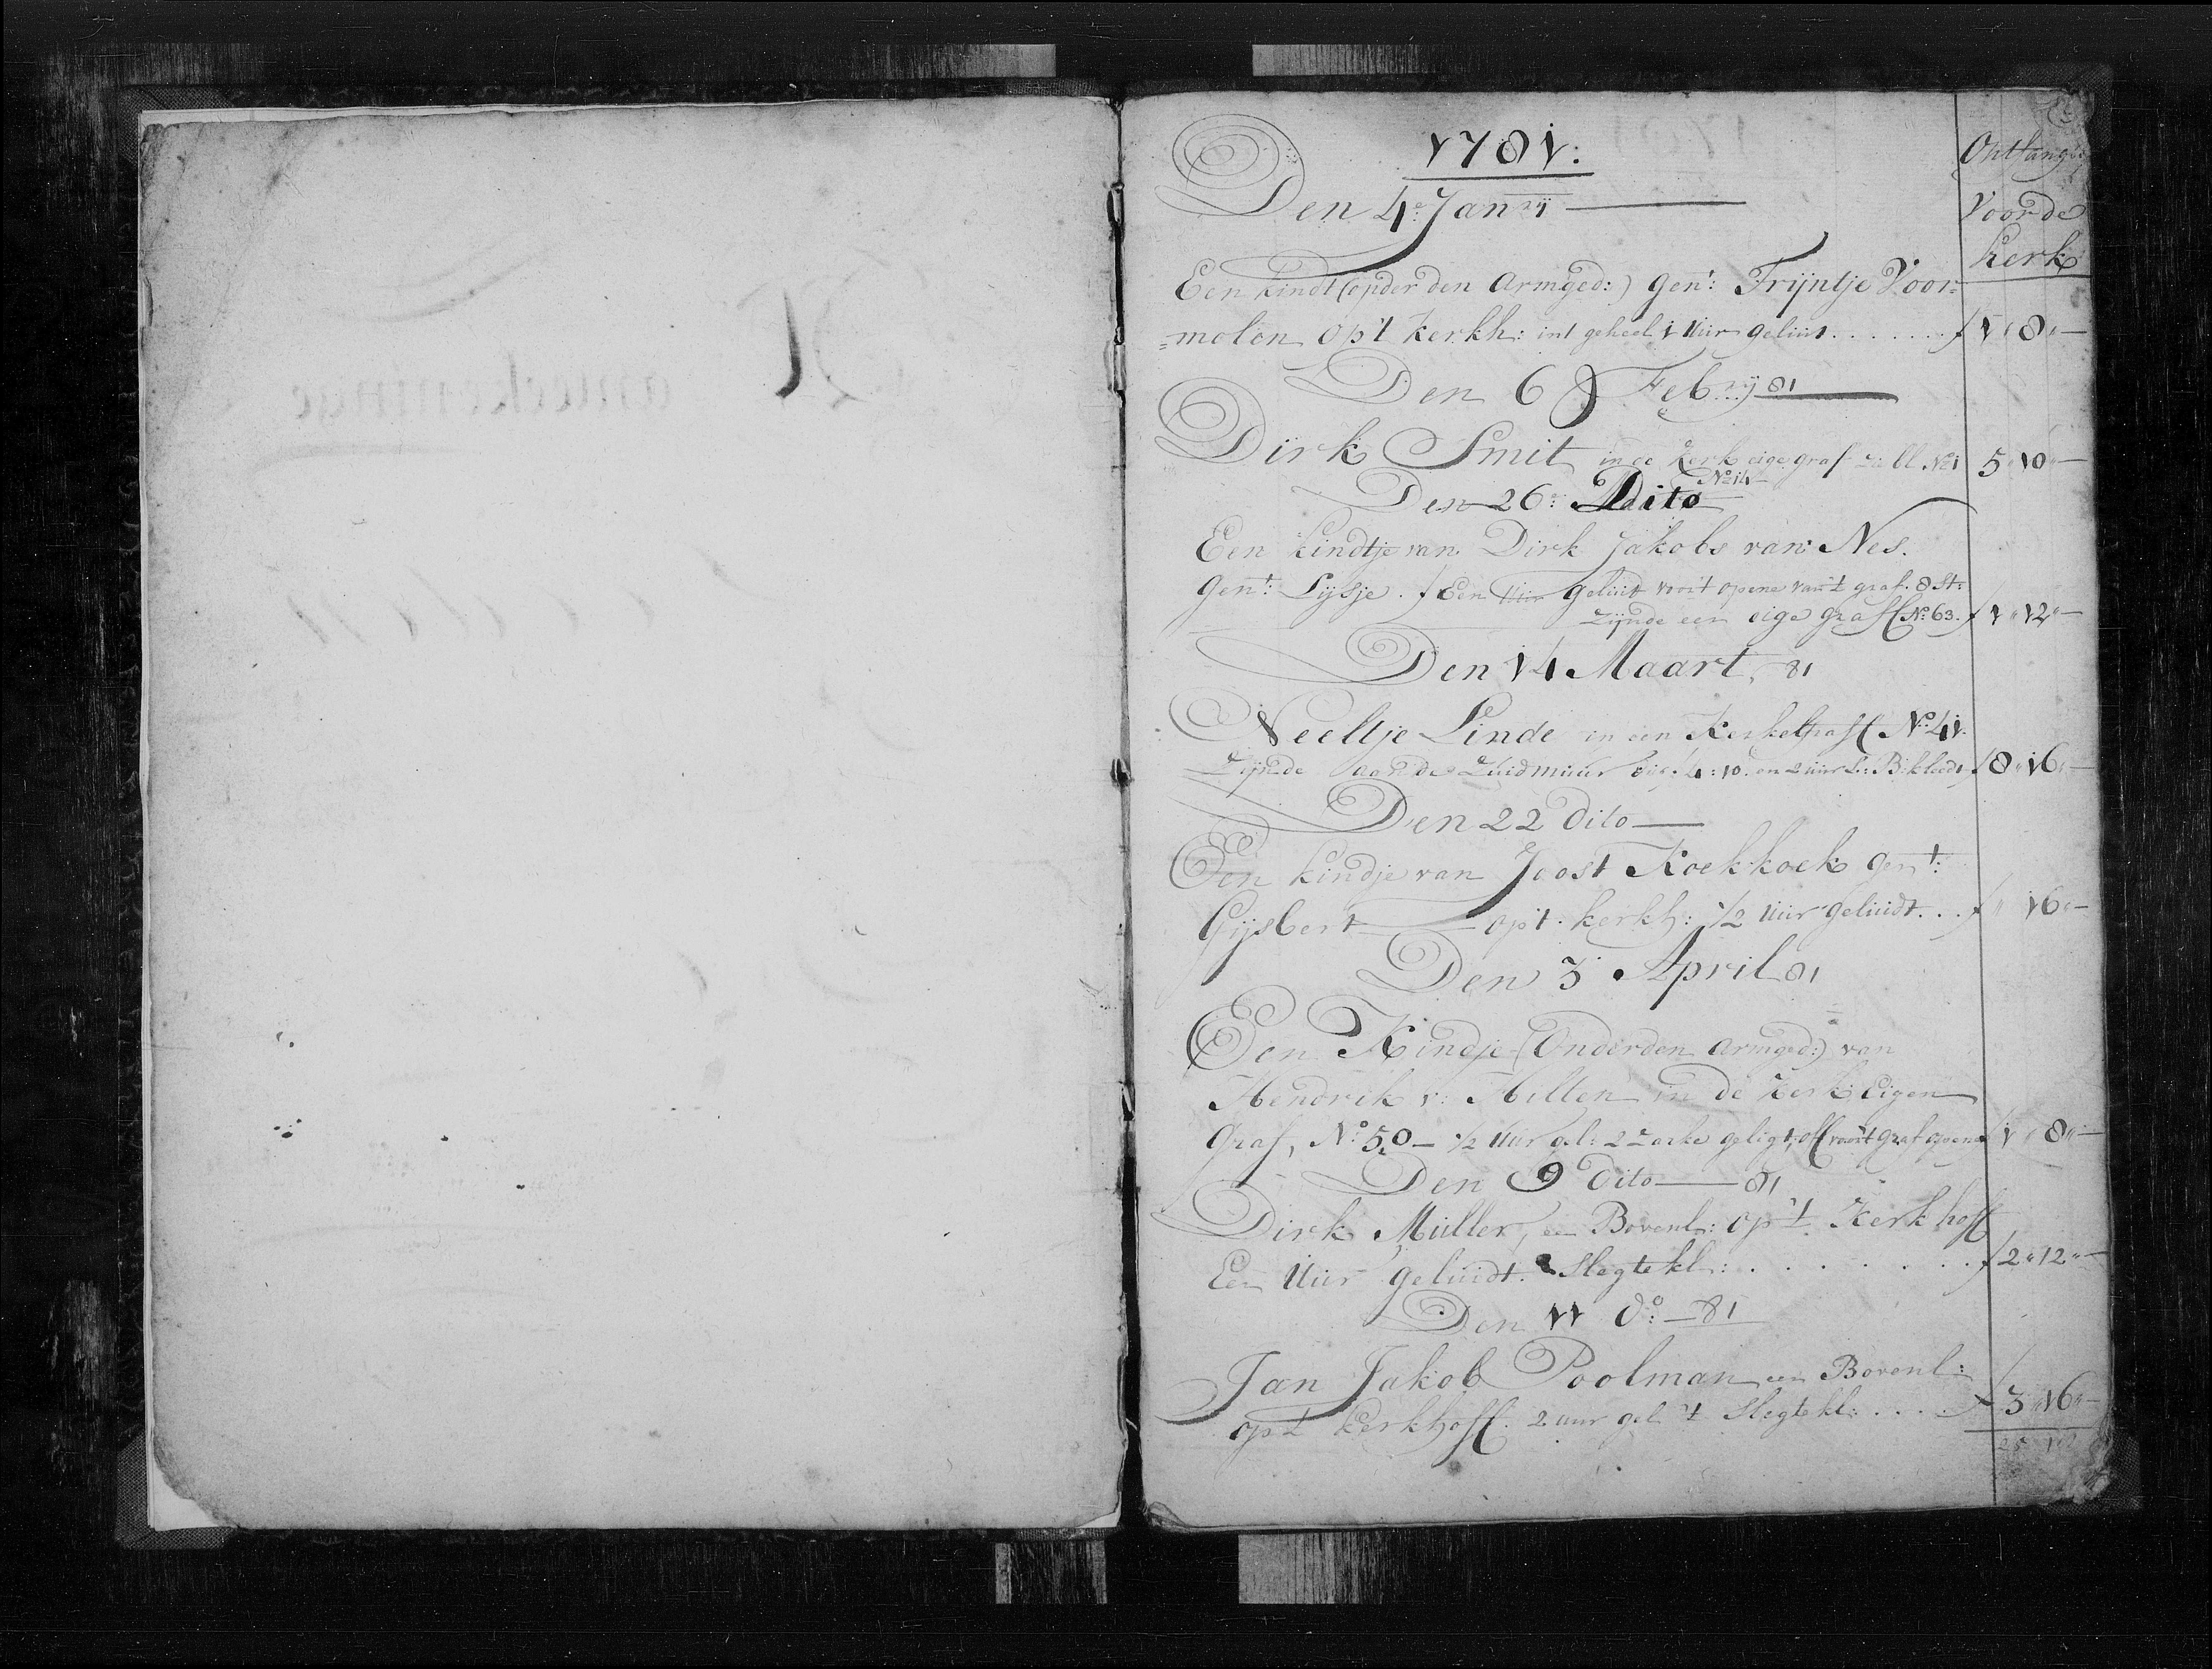 1781:
Ontfang
Voor de
Kerk
Den 4e: Janrij
Een kindt (onder den Armged:) gent: Trijntje Voor=
=molen op't kerkh: int geheel 1 Uur geluit . . . . . . f 1 " 8 " —
Den 6 Febrij 81
Dirk Smit in de kerk eige graf No 1 5 " 10 " —
No 14
Den 26: Dito
Een kindtje van Dirk Jakobs van Nes.
gent: Lijsje. / Een Uur geluit voort opene van't graf. 8 St:
zijnde een eige graff No: 63. f 1 " 12 " —
Den 14 Maart, 81
Neeltje Linde in een Kerkegraff No: 41.
zijnde aan de Zuidmuur 4:10. en 2 uur L: B: kleedt f 8 " 16 " —
Den 22 Dito
Een kindje van Joost Koekkoek gent:
Gijsbert op't kerkh: 1/2 Uur geluidt . . . f " 16 " —
Den 3 April 81
Een Kindje (Onder den Armged:) van
Hendrik v: Hilten in de kerk Eigen
Graf, No: 50 — 1/2 Uur gel: 2 zerke geligt, off voor't graf opene f 1 " 8 " —
Den 9 Dito — 81
Dirk Muller, een Bovenl: op't Kerkhoff
Een Uur geluidt. Slegte kl: . . . . . . . . f 2 " 12 " —
Den 11 do: — 81
Jan Jakob Poolman een Bovenl:
op't kerkhoff. 2 uur gel: 't Slegte kl: . . . . f 3 " 16 " —